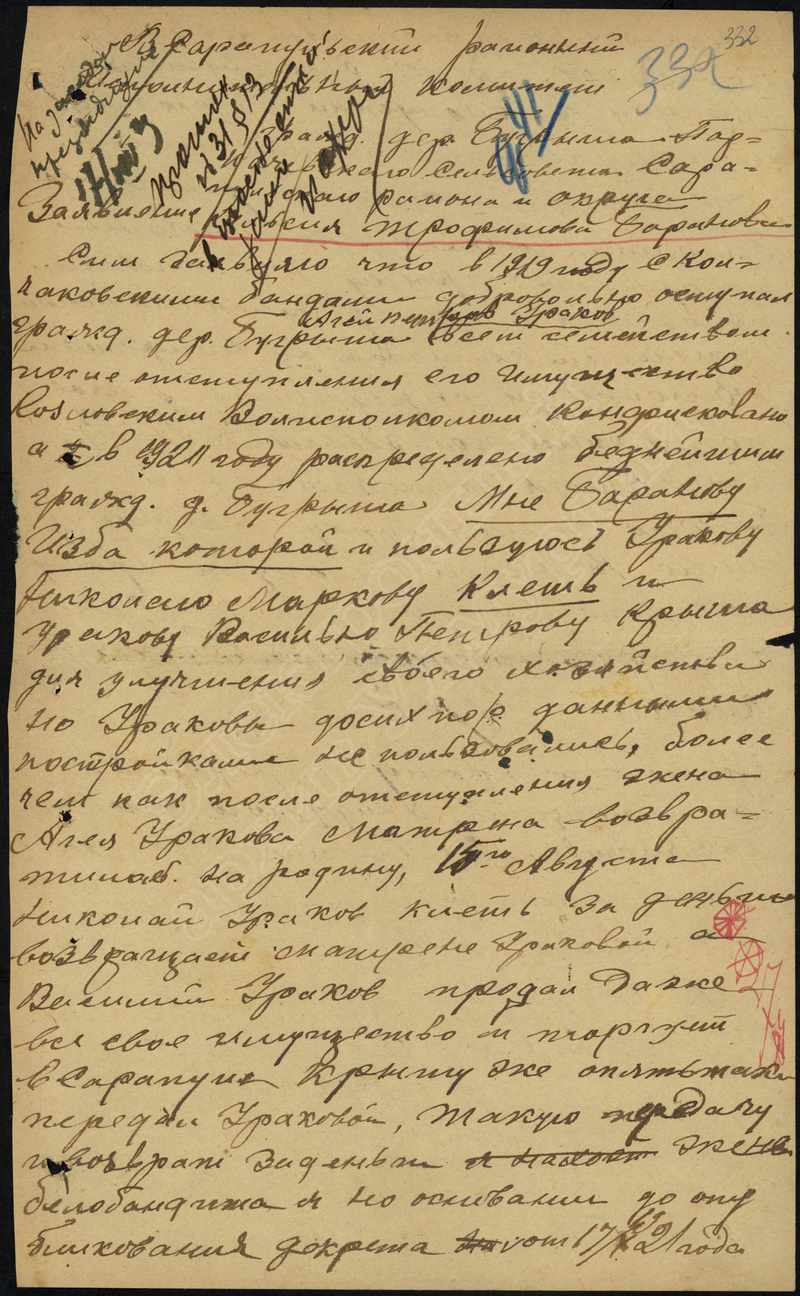 332
В Сарапульский районный
Исполнительный комитет
332
На заседан
президиума
гражд. дер. Бугрыша Пар-
Сельсовета Сара-
района и округа
Заявление
Трофимова Баранова
Сим заявляю что в 1919 году с Кол-
чаковскими бандами добровольно оступил
Агей Петров Ураков
гражд. дер. Бугрыша всем семейством
после отступления его имущество
Козловским Волисполкомом Конфисковано
а в 1921 году распределено беднейшим
гражд. д. Бугрыша Мне Баранову
Изба которой и пользуюсь Уракову
Николаю Маркову Клеть и
Уракову Василью Петрову Крыша
для улучшения своего хозяйства
но Ураковы досих пор данными
постройками не пользовались, более
чем как после отступления жена
Агея Уракова Матрена возвра-
тилась на родину, 15го Августа
Николай Ураков клеть за деньги
возвращает Матрене Ураковой а
Василий Ураков продал даже
все свое имущество и торгует
в Сарапуле Крышу же опять таки
передал Ураковой, такую передачу
и возврат за деньги жене
белобандита я но основании до опу
бликования декрета от 17/ 21 года